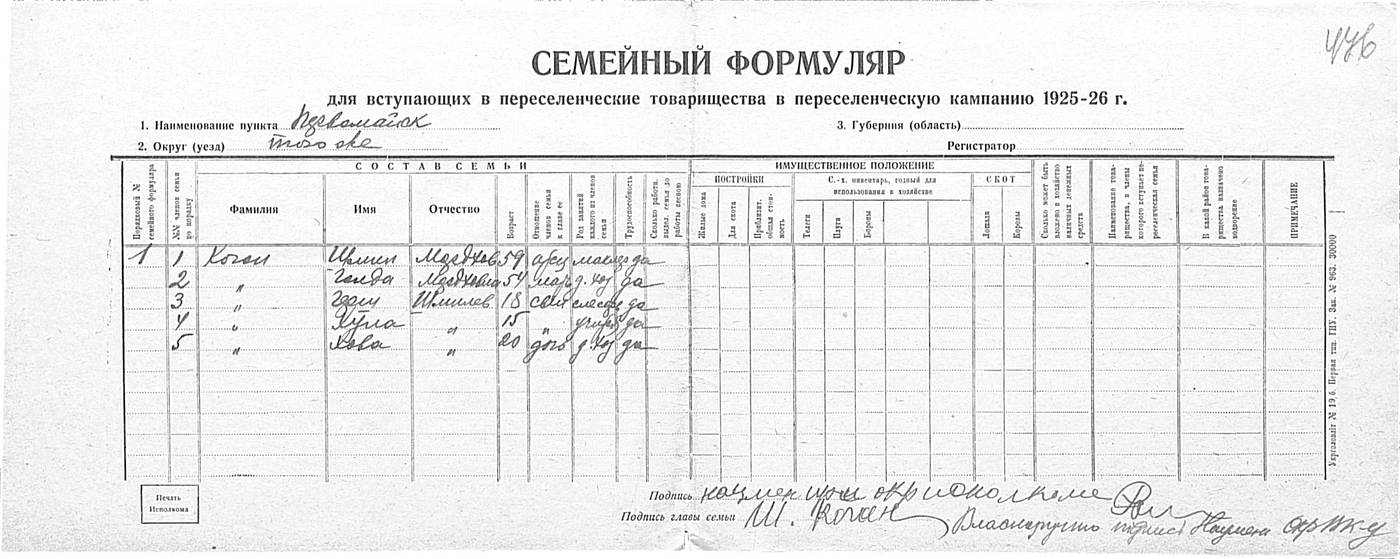 476
СЕМЕЙНЫЙ ФОРМУЛЯР
для вступающих в переселенческие товарищества в переселенческую кампанию 1925-26 г.
1. Наименование пункта Первомайск
3. Губерния (область)
2. Округ (уезд) того же
Регистратор
СОСТАВ СЕМЬИ
ИМУЩЕСТВЕННОЕ ПОЛОЖЕНИЕ
Порядковый № семейного формуляра
№№ членов семьи по порядку
Фамилия
Имя
Отчество
Возраст
Отношение членов семьи к главе ее
Род занятий каждого из членов семьи
Трудоспособность
Сколько работн. выдел. семья до работы весною
ПОСТРОЙКИ
Жилые дома
Для скота
Приблизит. общая стоимость
С.-х. инвентарь, годный для использования в хозяйстве
Телеги
Плуги
Бороны
СКОТ
Лошади
Коровы
Сколько может быть вложено в хозяйство наличных денежных средств
Наименование товарищества, в члены которого вступает переселенческая семья
В какой район товарищества назначено водворение
ПРИМЕЧАНИЕ
1 1 Коган Шмил Мордков 59 отец маклер да
2 " Голда Мордковна 54 мать д. хоз да
3 " Герш Шмилев 18 сын слесарь да
4 " " 15 " да
5 " Хова " 20 дочь д. хоз да
Укрголовліт № 19 б. Перша тип. ГПУ. Зак. № 963. 30000
Печать Исполкома
Подпись
Подпись главы семьи Ш. Коган
Власноручно подпись